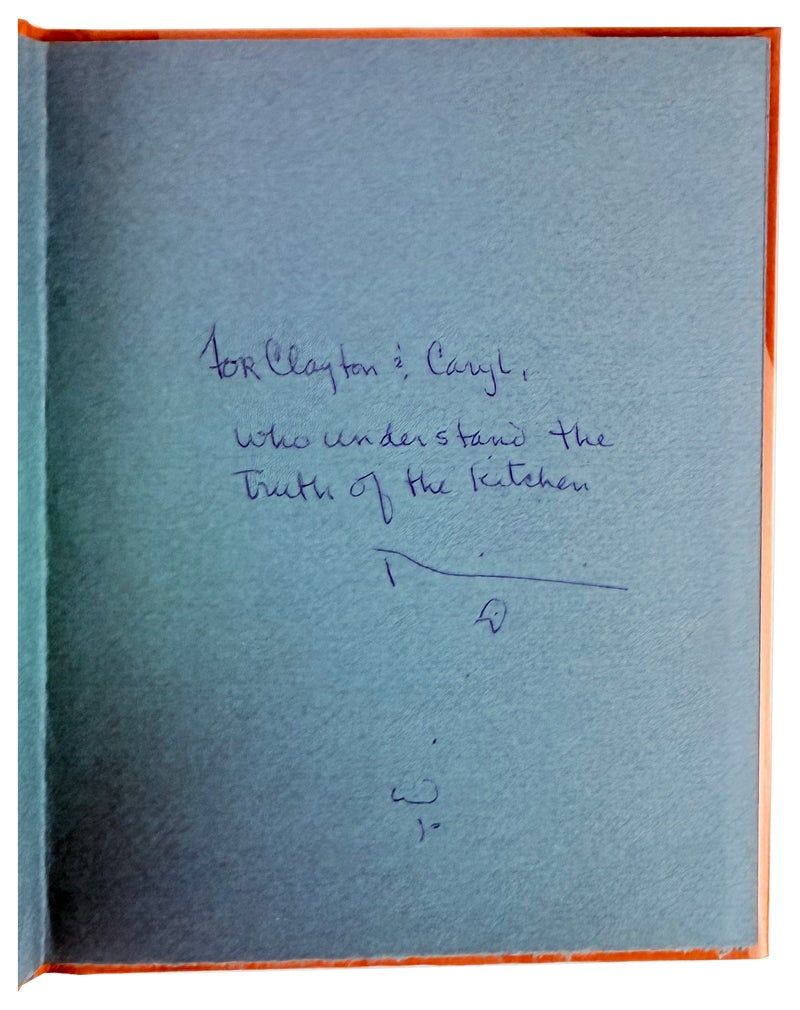 For Clayton & Caryl,
who understand the
Truth of the kitchen